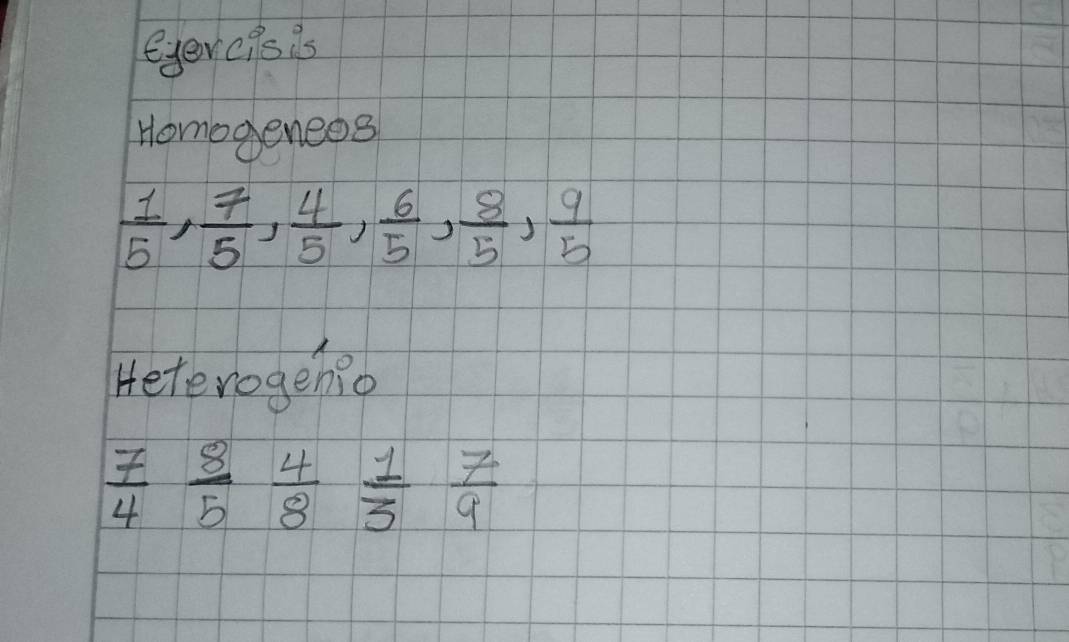 Ejercisis
Homogeneos
1/5, 7/5, 4/5, 6/5, 8/5, 9/5
Heterogénio
7/4 8/5 4/8 1/3 7/9